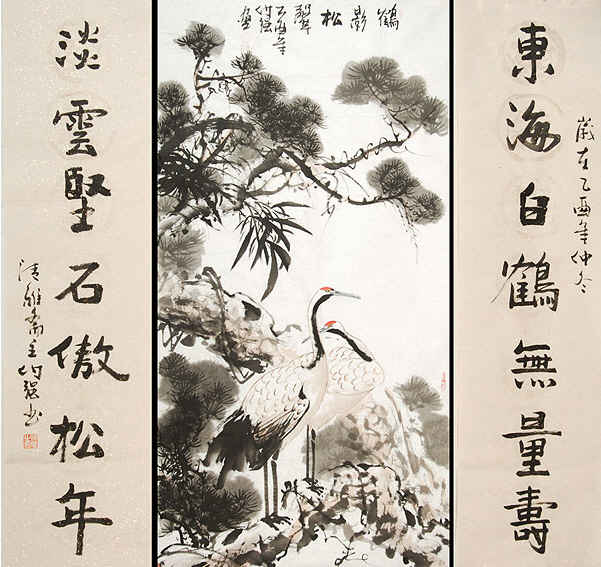 東海白鶴無量壽
歲在乙酉年仲冬
鶴影松聲
乙酉年
淡雲堅石傲松年